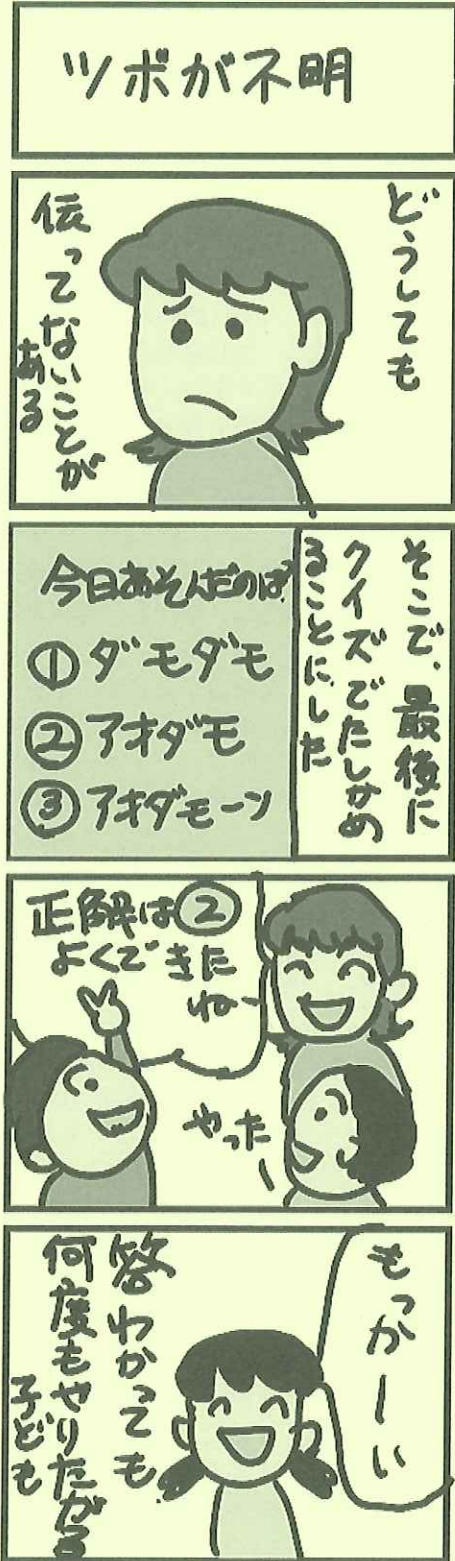 ツボが不明
どうしても
伝ってないことが
ある
そこで、最後に
クイズでたしかめ
ることにした
今日あそんだのは?
①ダモダモ
②アオダモ
③アオダモーン
正解は②
よくできた
ねー
やったー
もっかーい
答わかっても
何度もやりたがる
子ども